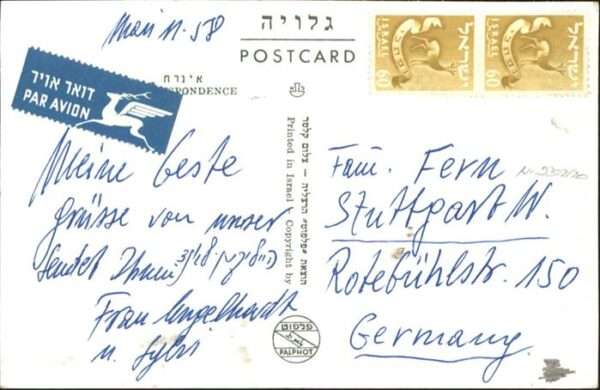 Mai 11. 58
גלויה
POSTCARD
דואר אויר
PAR AVION
אינרת
SPONDENCE
ישראל
ISRAEL
60
ישראל
ISRAEL
60
Meine beste
Grüsse von unser
sendet Ihnen
Frau Engelhardt
u.
הוצאת "פלפוט" הרצליה — צלום קלטר
Printed in Israel Copyright by
פלפוט
PALPHOT
Fam. Fern
Stuttgart W.
Rotebühlstr. 150
Germany